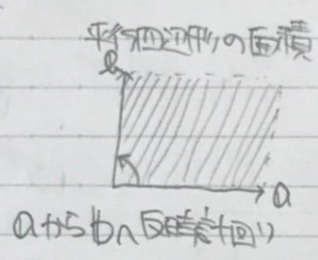 平行四辺形の面積
b
a
aからbへ反時計回り